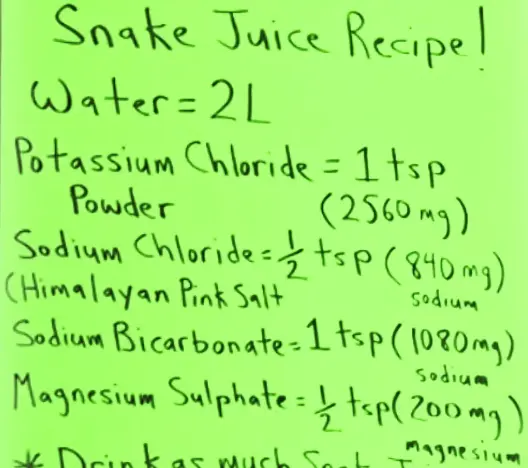 Snake Juice Recipe!
Water = 2L
Potassium Chloride = 1 tsp
Powder (2560 mg)
Sodium Chloride = 1/2 tsp (840 mg)
(Himalayan Pink Salt sodium
Sodium Bicarbonate = 1 tsp (1080mg)
sodium
Magnesium Sulphate = 1/2 tsp (200 mg)
magnesium
* Drink as much